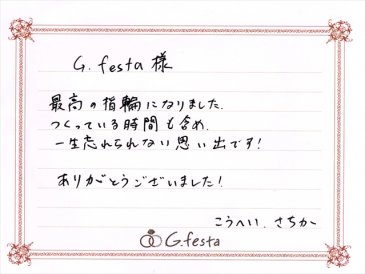 G.festa 様
最高の指輪になりました.
つくっている時間も含め.
一生忘れられない思い出です!
ありがとうございました!
こうへい. さちか
G.festa